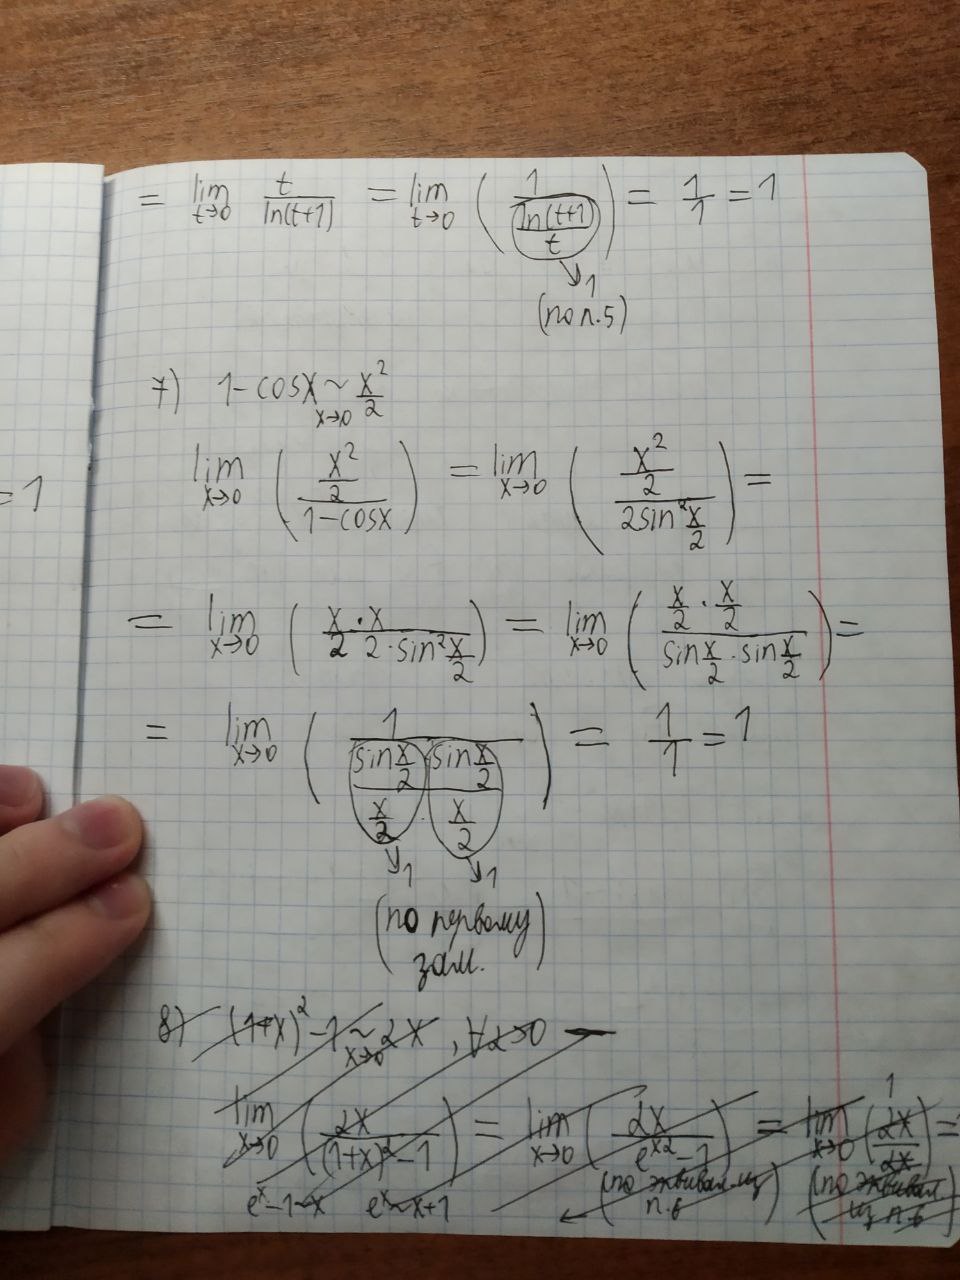 = lim t→0 t/ln(t+1) = lim t→0 (1/(ln(t+1)/t)) = 1/1 = 1
→1
(по п.5)
7) 1-cosx ~ x→0 x²/2
= 1
lim x→0 ((x²/2)/(1-cosx)) = lim x→0 ((x²/2)/(2sin² x/2)) =
= lim x→0 (x·x/(2·2·sin² x/2)) = lim x→0 ((x/2 · x/2)/(sin x/2 · sin x/2)) =
= lim x→0 (1/((sin x/2)/(x/2) · (sin x/2)/(x/2))) = 1/1 = 1
→1 →1
(по первому
зам.)
8) (1+x)² -1 ~ x→0 2x , ∀2>0
lim x→0 (2x/((1+x)²-1)) = lim x→0 (2x/(e^x2 -1)) = lim x→0 (2x/2x) = 1
e^x-1~x e^x~x+1 (по эквивал. из п.6) (по эквивал. из п.6)